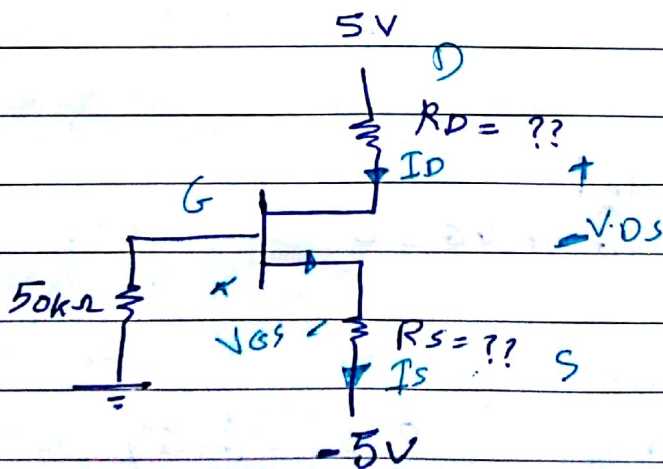 5V
D
RD = ??
ID
+
G
- VDS
50kΩ
VGS
RS = ??
S
IS
-5V